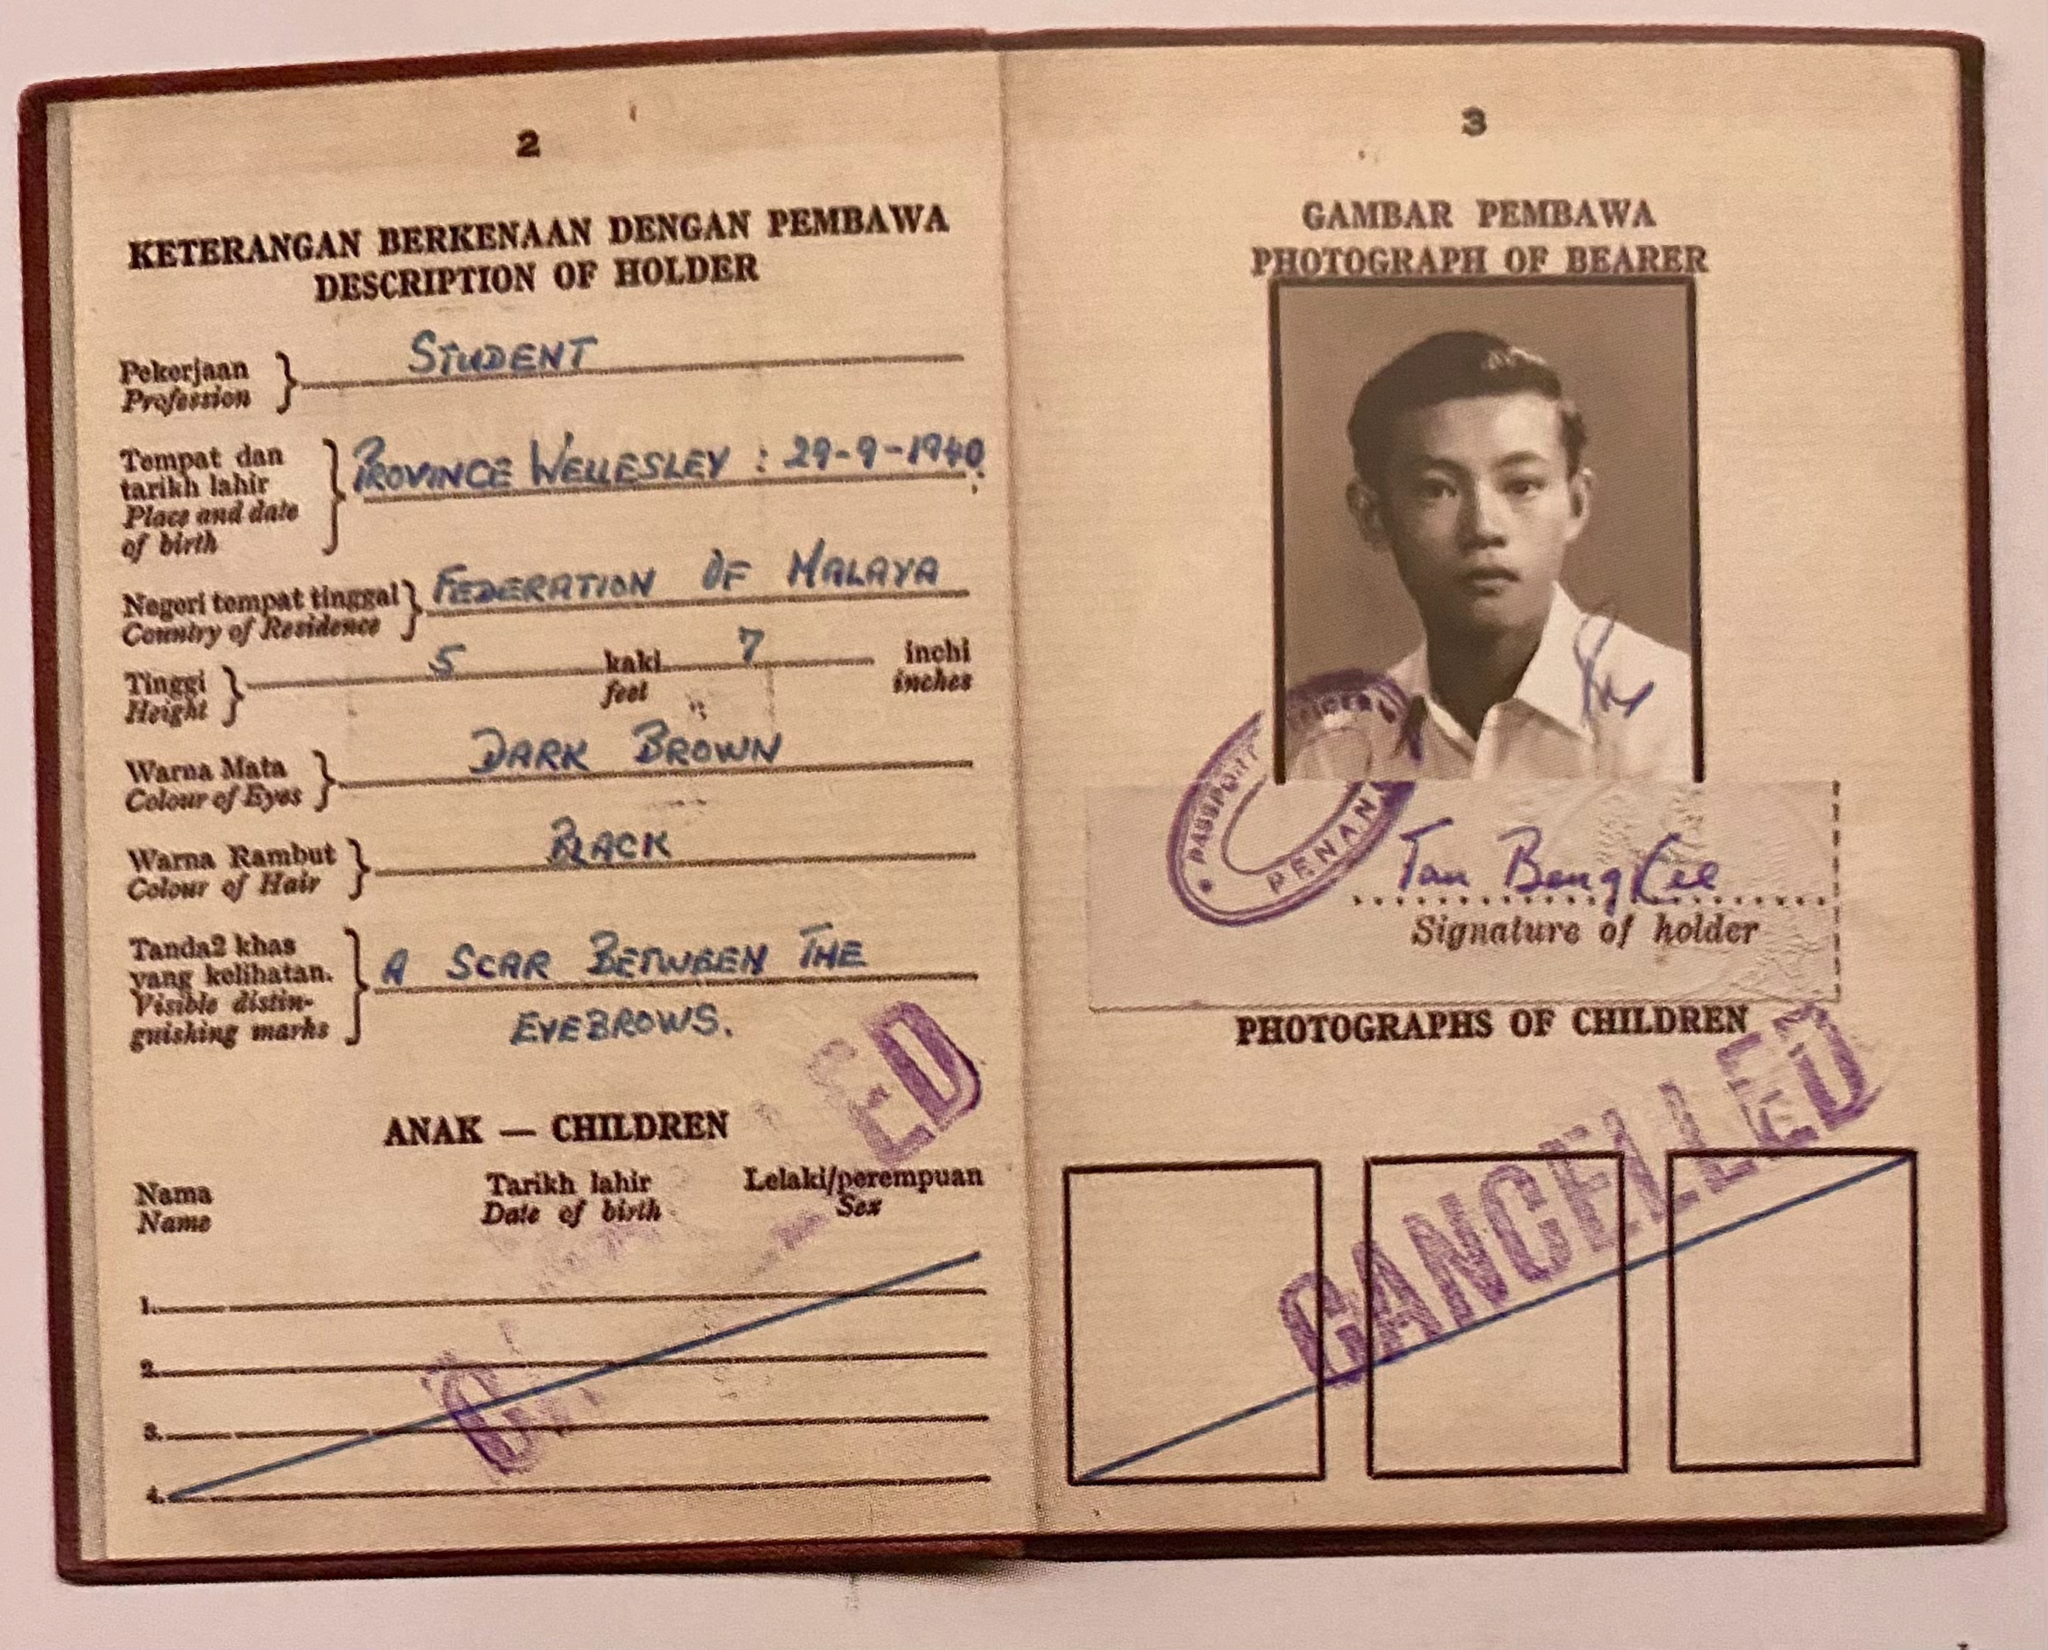 2
KETERANGAN BERKENAAN DENGAN PEMBAWA
DESCRIPTION OF HOLDER
Pekerjaan
Profession
STUDENT
Tempat dan
tarikh lahir
Place and date
of birth
PROVINCE WELLESLEY : 29-9-1940.
Negeri tempat tinggal
Country of Residence
FEDERATION OF MALAYA
Tinggi
Height
5 kaki 7 inchi
feet inches
Warna Mata
Colour of Eyes
DARK BROWN
Warna Rambut
Colour of Hair
BLACK
Tanda2 khas
yang kelihatan.
Visible distin-
guishing marks
A SCAR BETWEEN THE
EYEBROWS.
ANAK — CHILDREN
Nama Tarikh lahir Lelaki/perempuan
Name Date of birth Sex
1.
2.
3.
4.
3
GAMBAR PEMBAWA
PHOTOGRAPH OF BEARER
PASSPORT
PENANG
Tan Beng Kee
Signature of holder
PHOTOGRAPHS OF CHILDREN
CANCELLED